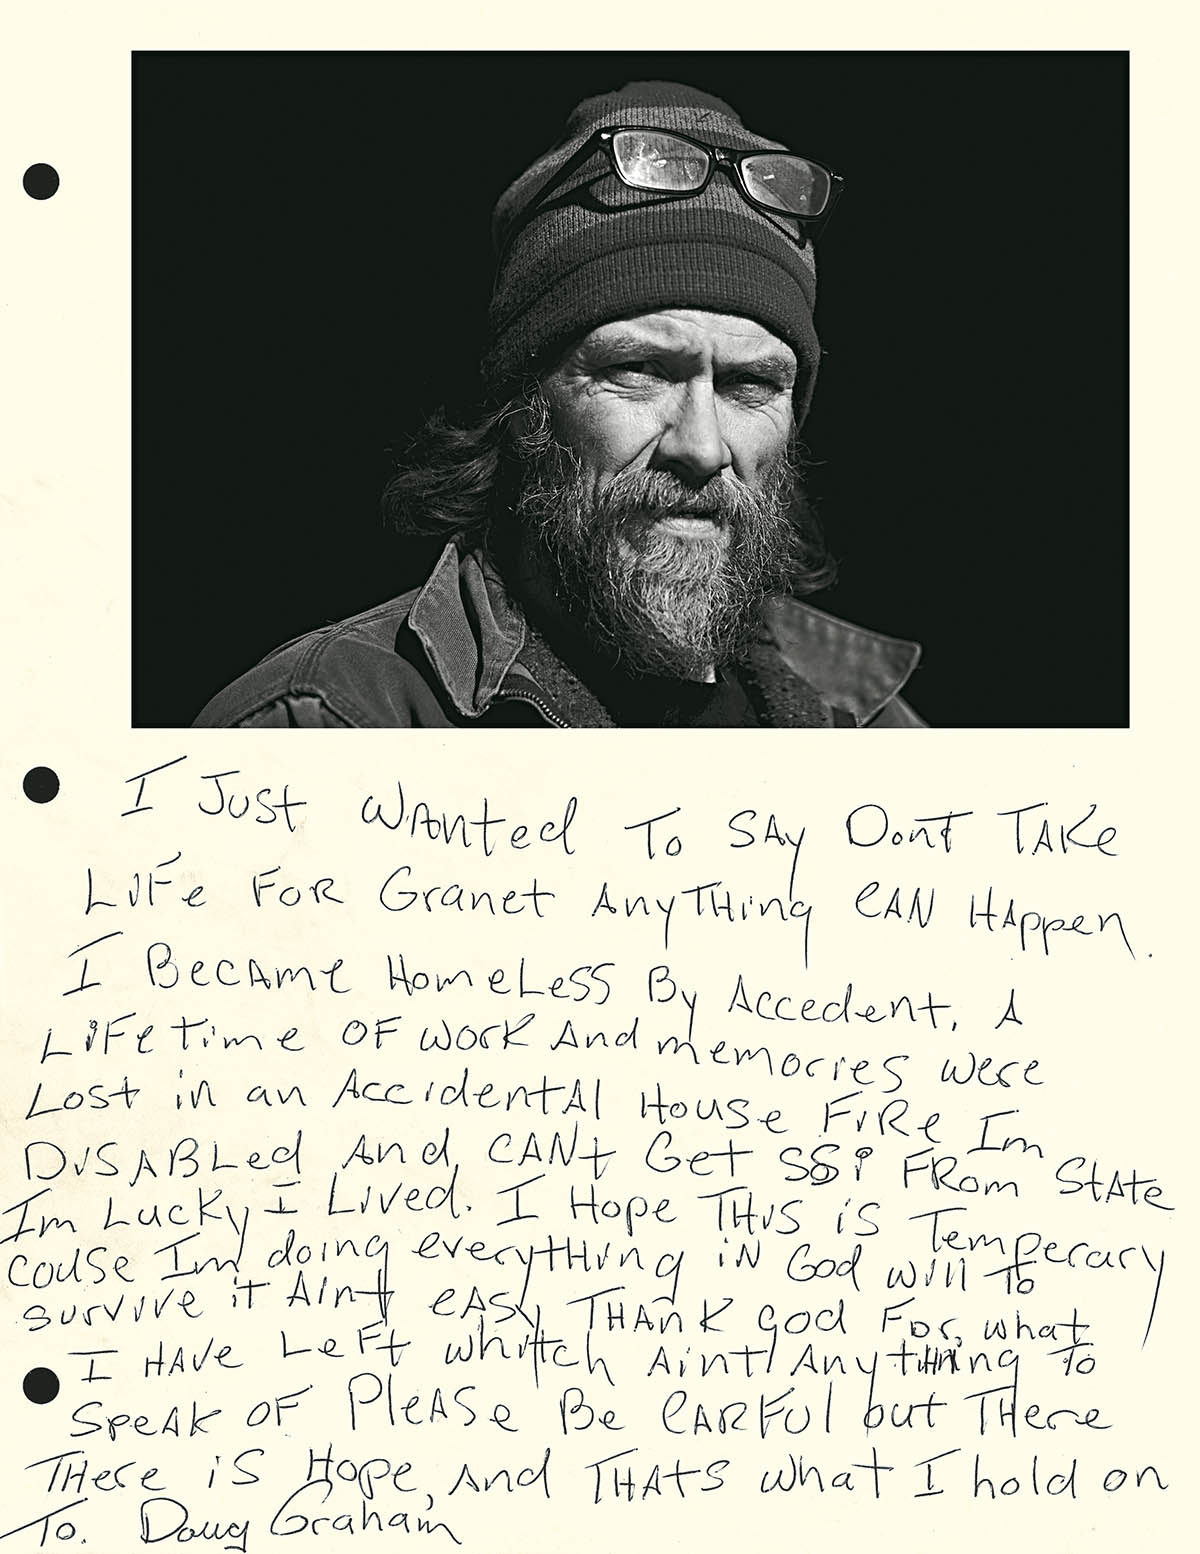 I Just Wanted To SAy Dont TAKe
LiFe FOR Granet AnyTHing CAN HAppen.
I BecAme HomeLess By Accedent, A
LiFetime OF work And memorres were
Lost in an AccidentAl House FiRe Im
DiSABLed And, CANt Get SSi FRom StAte
Im Lucky I Lived. I Hope THis is Temperary
couse Im doing everytHing iN God will To
survive it Aint eASy THAnK god For, what
I HAve LeFt whitch Aint AnytHing To
SpeAk OF PleASe Be CARFul but THere
THere iS Hope, And THATS what I hold on
To. Doug Graham